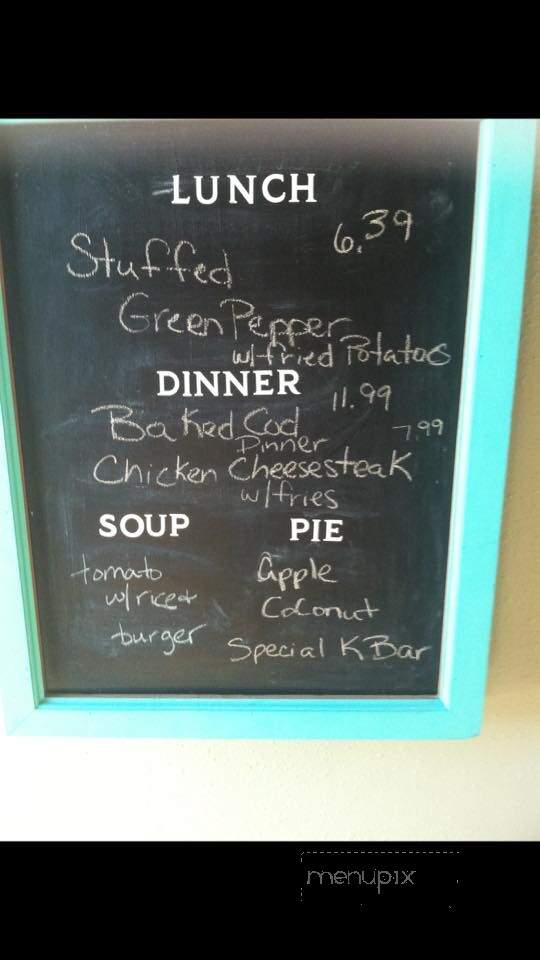 LUNCH
6.39
Stuffed
Green Pepper
w/fried Potatoes
DINNER
11.99
Baked Cod
Dinner
7.99
Chicken Cheesesteak
w/fries
SOUP
tomato
w/rice +
burger
PIE
apple
Coconut
Special K Bar
menupix